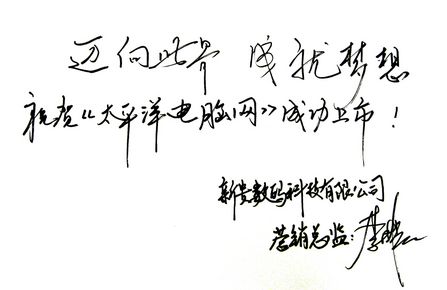 迈向世界 成就梦想
祝贺《太平洋电脑网》成功上市！
新贵数码科技有限公司
营销总监：李